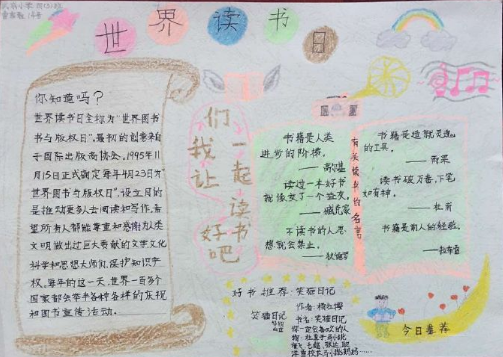 世界读书日
你知道吗?
世界读书日全称为“世界图书
与版权日”,最初的创意来自
于国际出版商协会。1995年11
月15日正式确定每年4月23日为
“世界图书与版权日”,设立目的
是推动更多人去阅读和写作,希
望所有人都能尊重和感谢为人类
文明做出过巨大贡献的文学文化
科学和思想大师们,保护知识产
权。每年的这一天,世界一百多个
国家都会举办各种各样的庆祝
和图书宣传活动。
让我们
一起读书
好吧
书籍是人类
进步的阶梯。
——高尔基
读过一本好书
就像交了一个益友。
不读书的人思
想就会禁止。
有关读书的名言
书籍是造就灵魂
的工具。
读书破万卷,下笔
如有神。
——杜甫
书籍是前人的经验。
好书推荐·笑猫日记
笑猫日记
作者:杨红樱
书名:笑猫日记
今日推荐